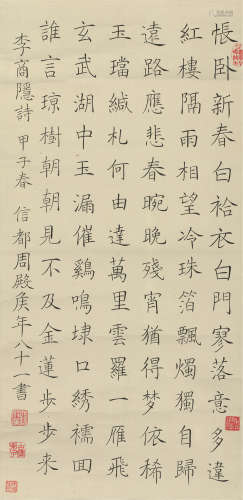 悵卧新春白袷衣白門寥落意多違
紅樓隔雨相望冷珠箔飄燭獨自歸
遠路應悲春晼晚殘宵猶得梦依稀
玉璫緘札何由達萬里雲羅一雁飛
玄武湖中玉漏催鷄鳴埭口綉襦回
誰言琼樹朝朝見不及金蓮步步来
李商隱詩 甲子春 信都周殿侯年八十一書